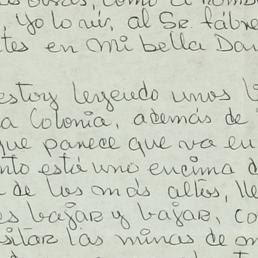 como a nomb
Yo lo vi, al Sr. fabre
tes en mi bella Dau
estoy leyendo unos li
a Colonia, además de
que parece que va en
nto está uno encima d
de los más altos, lle
es bajar y bajar, co
sitar las minas de m